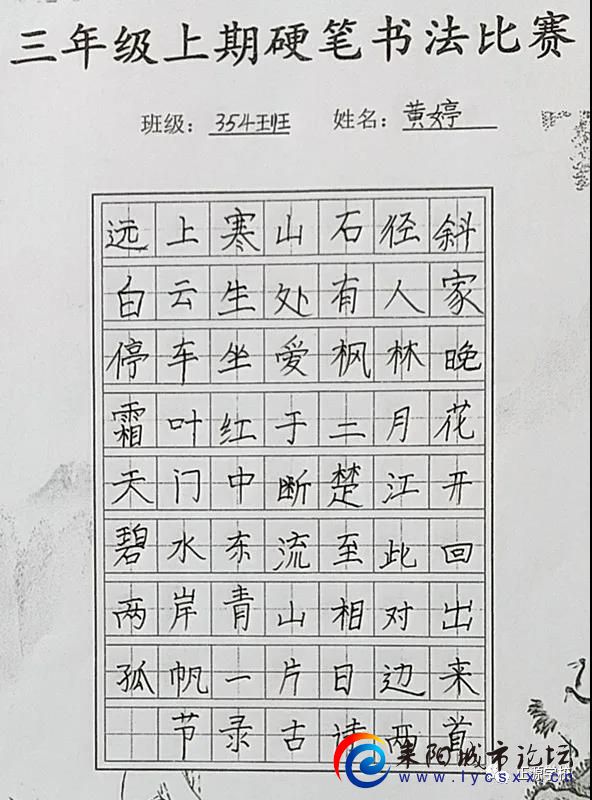 三年级上期硬笔书法比赛
班级：354班 姓名：黄婷
远上寒山石径斜
白云生处有人家
停车坐爱枫林晚
霜叶红于二月花
天门中断楚江开
碧水东流至此回
两岸青山相对出
孤帆一片日边来
节录古诗两首
耒阳城市论坛
www.lycsxx.cn